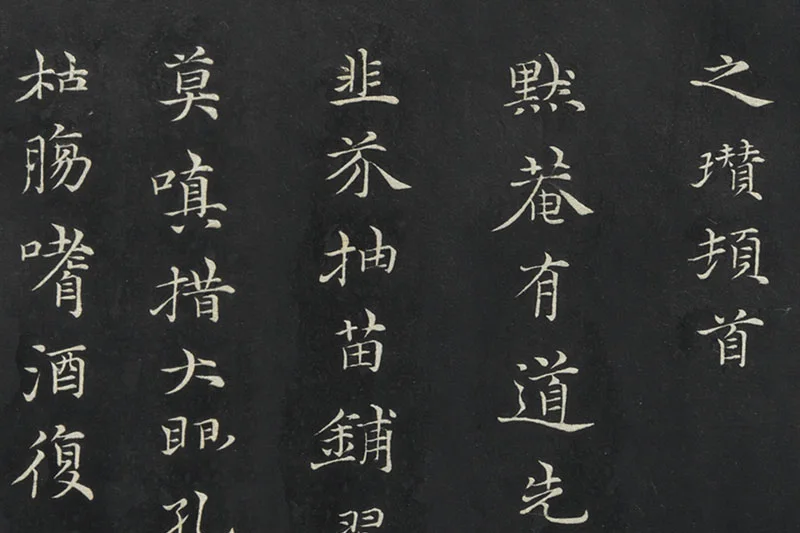 之瓚頓首
默菴有道先
韭芥抽苗鋪
莫嗔措大眼孔
枯膓嗜酒復